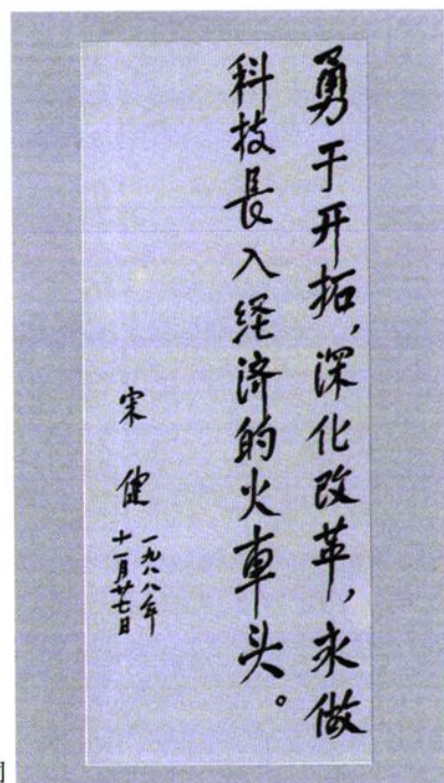 勇于开拓,深化改革,永做
科技長入经济的火車头。
宋健
一九八八年
十一月廿七日